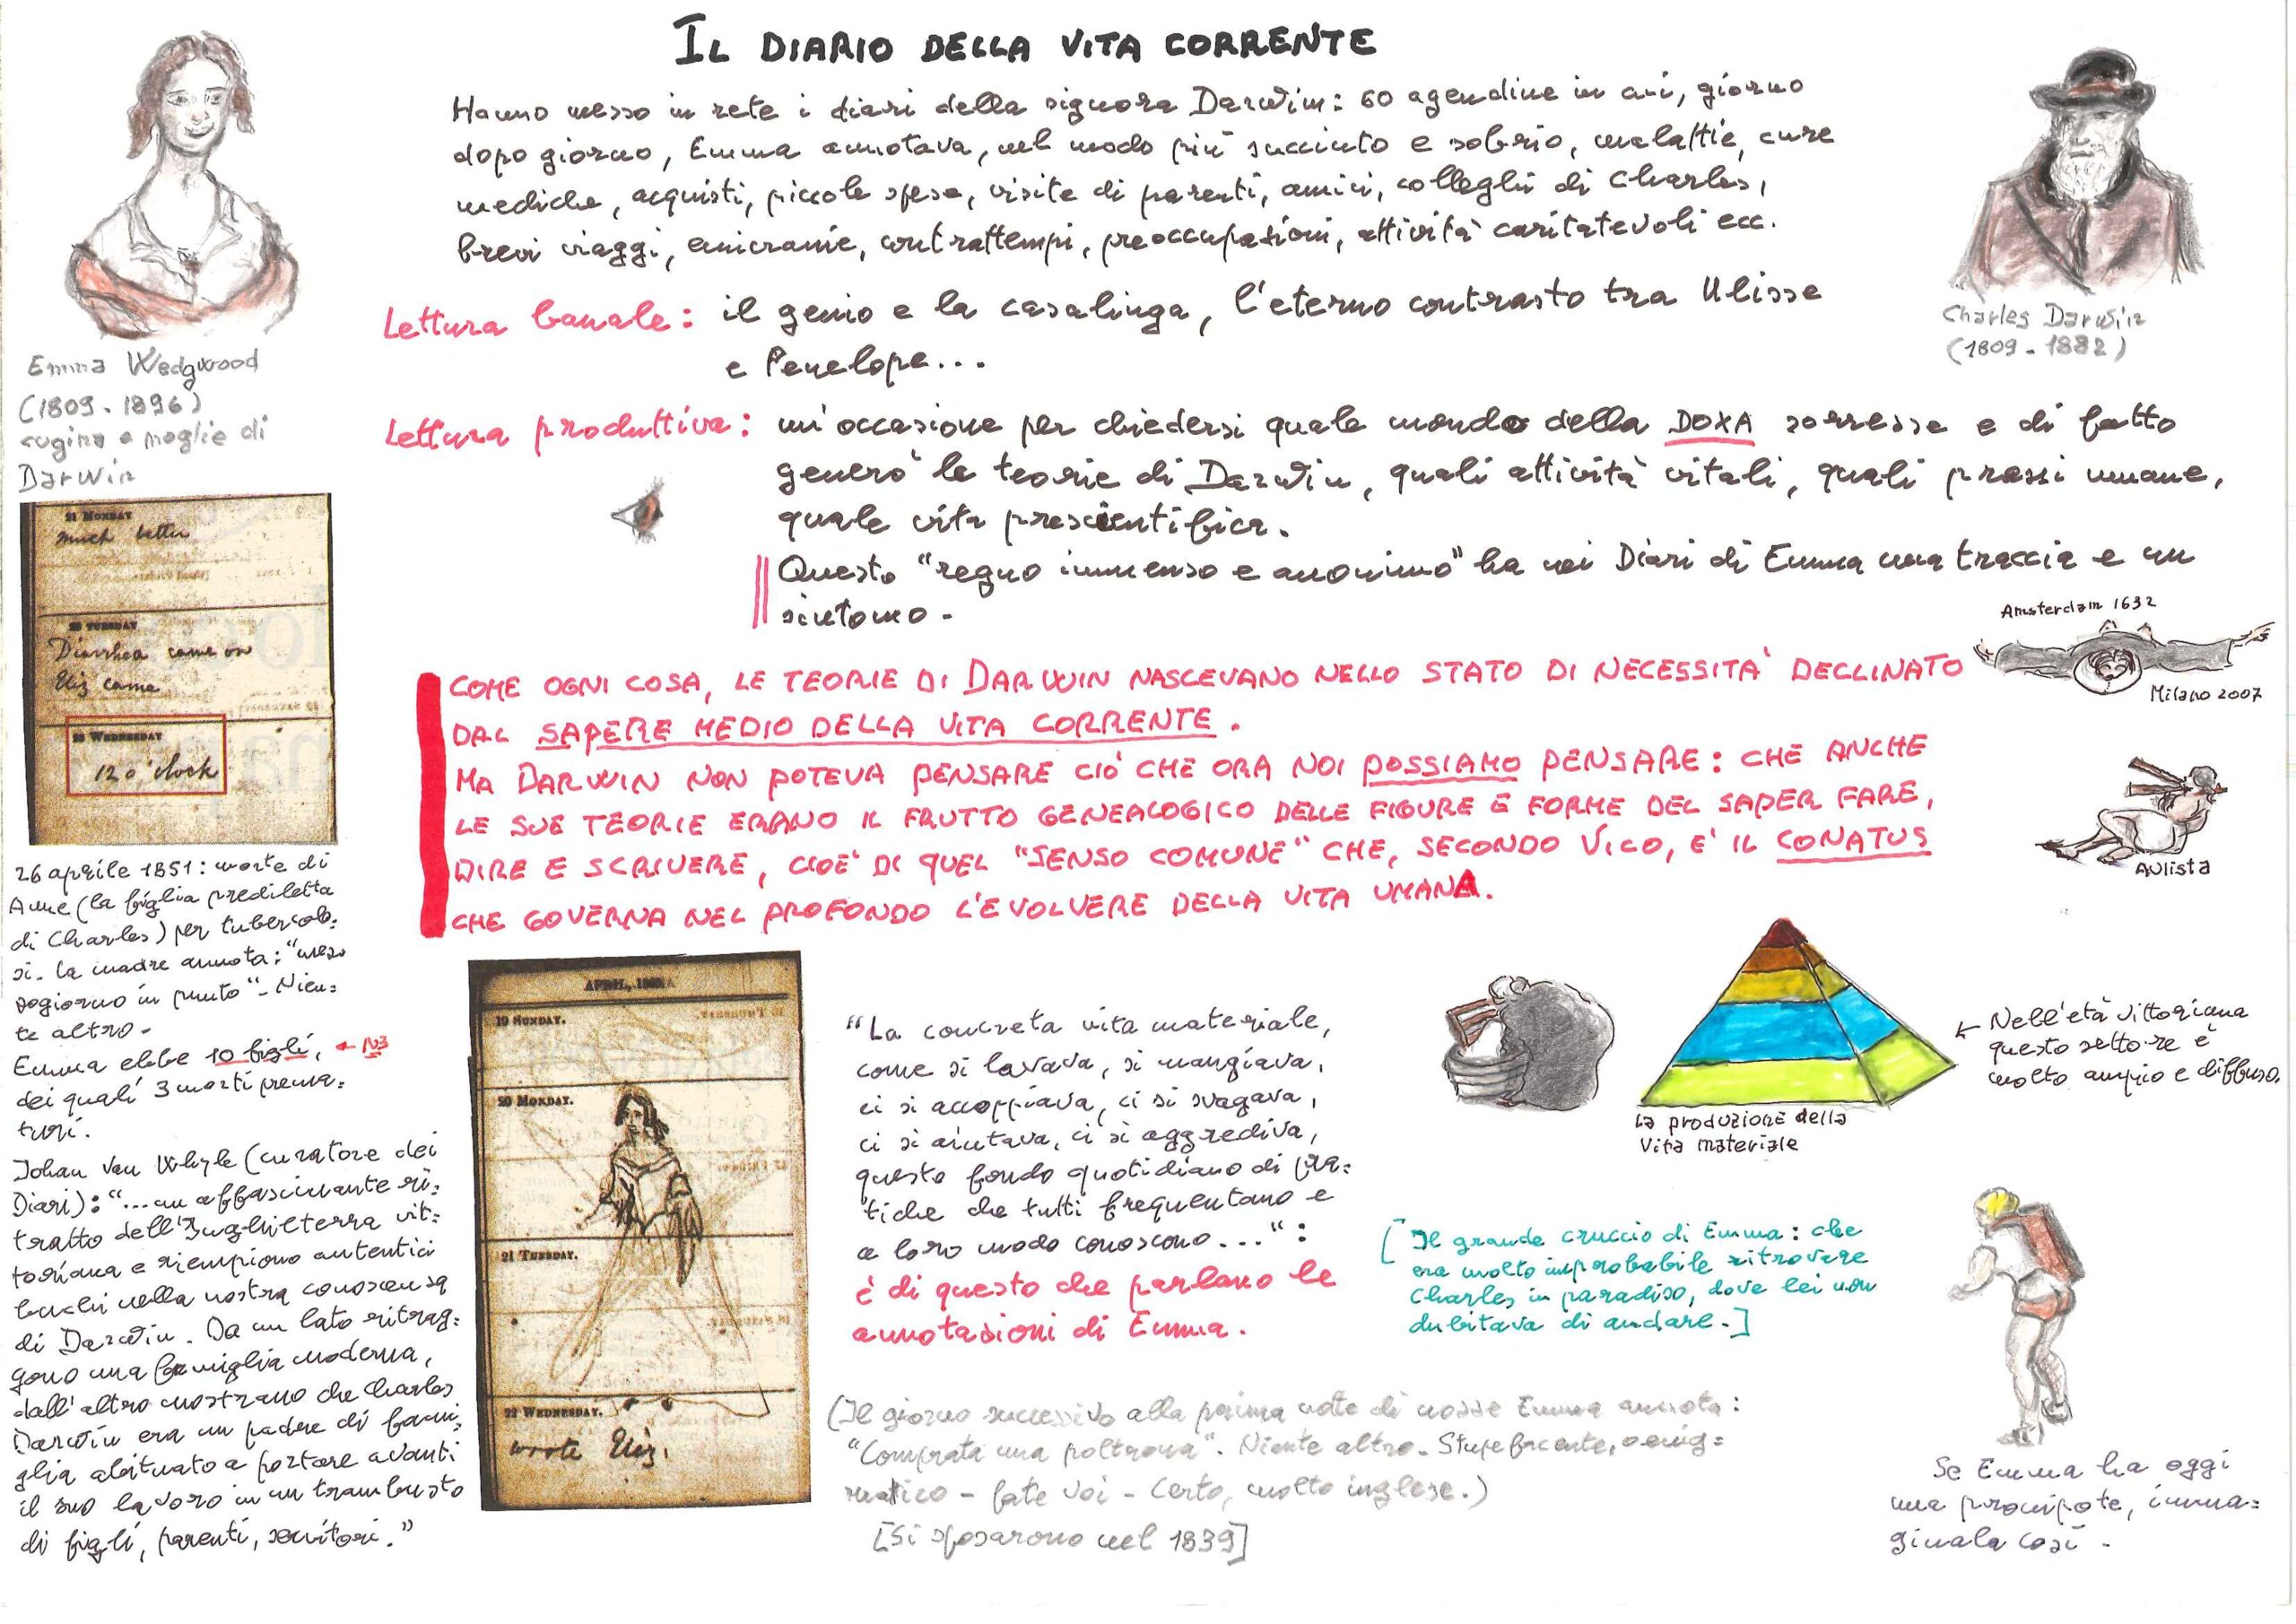 IL DIARIO DELLA VITA CORRENTE
Hanno messo in rete i diari della signora Darwin: 60 agendine in cui, giorno
dopo giorno, Emma annotava, nel modo più succinto e sobrio, malattie, cure
mediche, acquisti, piccole spese, visite di parenti, amici, colleghi di Charles,
brevi viaggi, emicranie, contrattempi, preoccupazioni, attività caritatevoli ecc.
Lettura banale: il genio e la casalinga, l'eterno contrasto tra Ulisse
e Penelope...
Lettura produttiva: un'occasione per chiedersi quale mondo della DOXA sorresse e di fatto
generò le teorie di Darwin, quali attività vitali, quali prassi umane,
quale vita prescientifica.
Questo "regno immenso e anonimo" ha nei Diari di Emma una traccia e un
sintomo.
COME OGNI COSA, LE TEORIE DI DARWIN NASCEVANO NELLO STATO DI NECESSITA' DECLINATO
DAL SAPERE MEDIO DELLA VITA CORRENTE.
MA DARWIN NON POTEVA PENSARE CIO' CHE ORA NOI POSSIAMO PENSARE: CHE ANCHE
LE SUE TEORIE ERANO IL FRUTTO GENEALOGICO DELLE FIGURE E FORME DEL SAPER FARE,
DIRE E SCRIVERE, CIOE' DI QUEL "SENSO COMUNE" CHE, SECONDO VICO, E' IL CONATUS
CHE GOVERNA NEL PROFONDO L'EVOLVERE DELLA VITA UMANA.
Emma Wedgwood
(1809-1896)
cugina e moglie di
Darwin
21 MONDAY
much better
TUESDAY
Diarrhea came on
Eliz came
WEDNESDAY
12 o'clock
26 aprile 1851: morte di
Anne (la figlia prediletta
di Charles) per tubercolo=
si. La madre annota: "mez=
zogiorno in punto". Nien=
te altro.
Emma ebbe 10 figli, ← N3
dei quali 3 morti prema=
turi.
Johan Van Whyle (curatore dei
Diari): "...un affascinante ri=
tratto dell'Inghilterra vit=
toriana e riempiono autentici
buchi nella nostra conoscenza
di Darwin. Da un lato ritrag=
gono una famiglia moderna,
dall'altro mostrano che Charles
Darwin era un padre di fami=
glia abituato a portare avanti
il suo lavoro in un trambusto
di figli, parenti, servitori."
APRIL,
19 MONDAY.
20 MONDAY.
21 TUESDAY.
22 WEDNESDAY.
wrote Eliz.
"La concreta vita materiale,
come si lavava, si mangiava,
ci si accoppiava, ci si svagava,
ci si aiutava, ci si aggrediva,
questo fondo quotidiano di pra=
tiche che tutti frequentano e
a loro modo conoscono...":
è di questo che parlano le
annotazioni di Emma.
(Il giorno successivo alla prima notte di nozze Emma annota:
"Comprata una poltrona". Niente altro. Stupefacente, o enig=
matico - fate voi - Certo, molto inglese.)
[Si sposarono nel 1839]
[Il grande cruccio di Emma: che
era molto improbabile ritrovare
Charles in paradiso, dove lei non
dubitava di andare.]
Charles Darwin
(1809-1882)
Amsterdam 1632
Milano 2007
Aulista
La produzione della
Vita materiale
← Nell'età vittoriana
questo settore è
molto ampio e diffuso.
Se Emma ha oggi
una pronipote, imma=
ginala così.